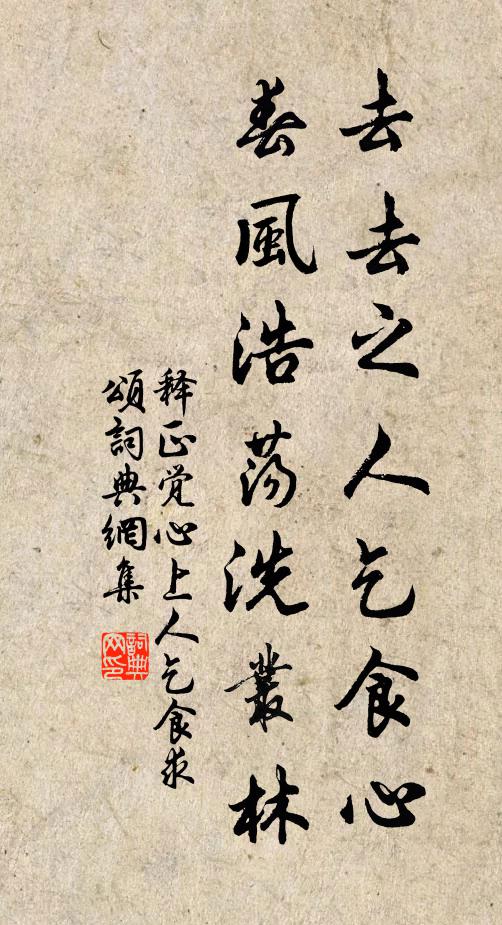 去去之人乞食心
春風浩荡洗叢林
释正觉心上人乞食求
頌詞典網集
詞典
网印